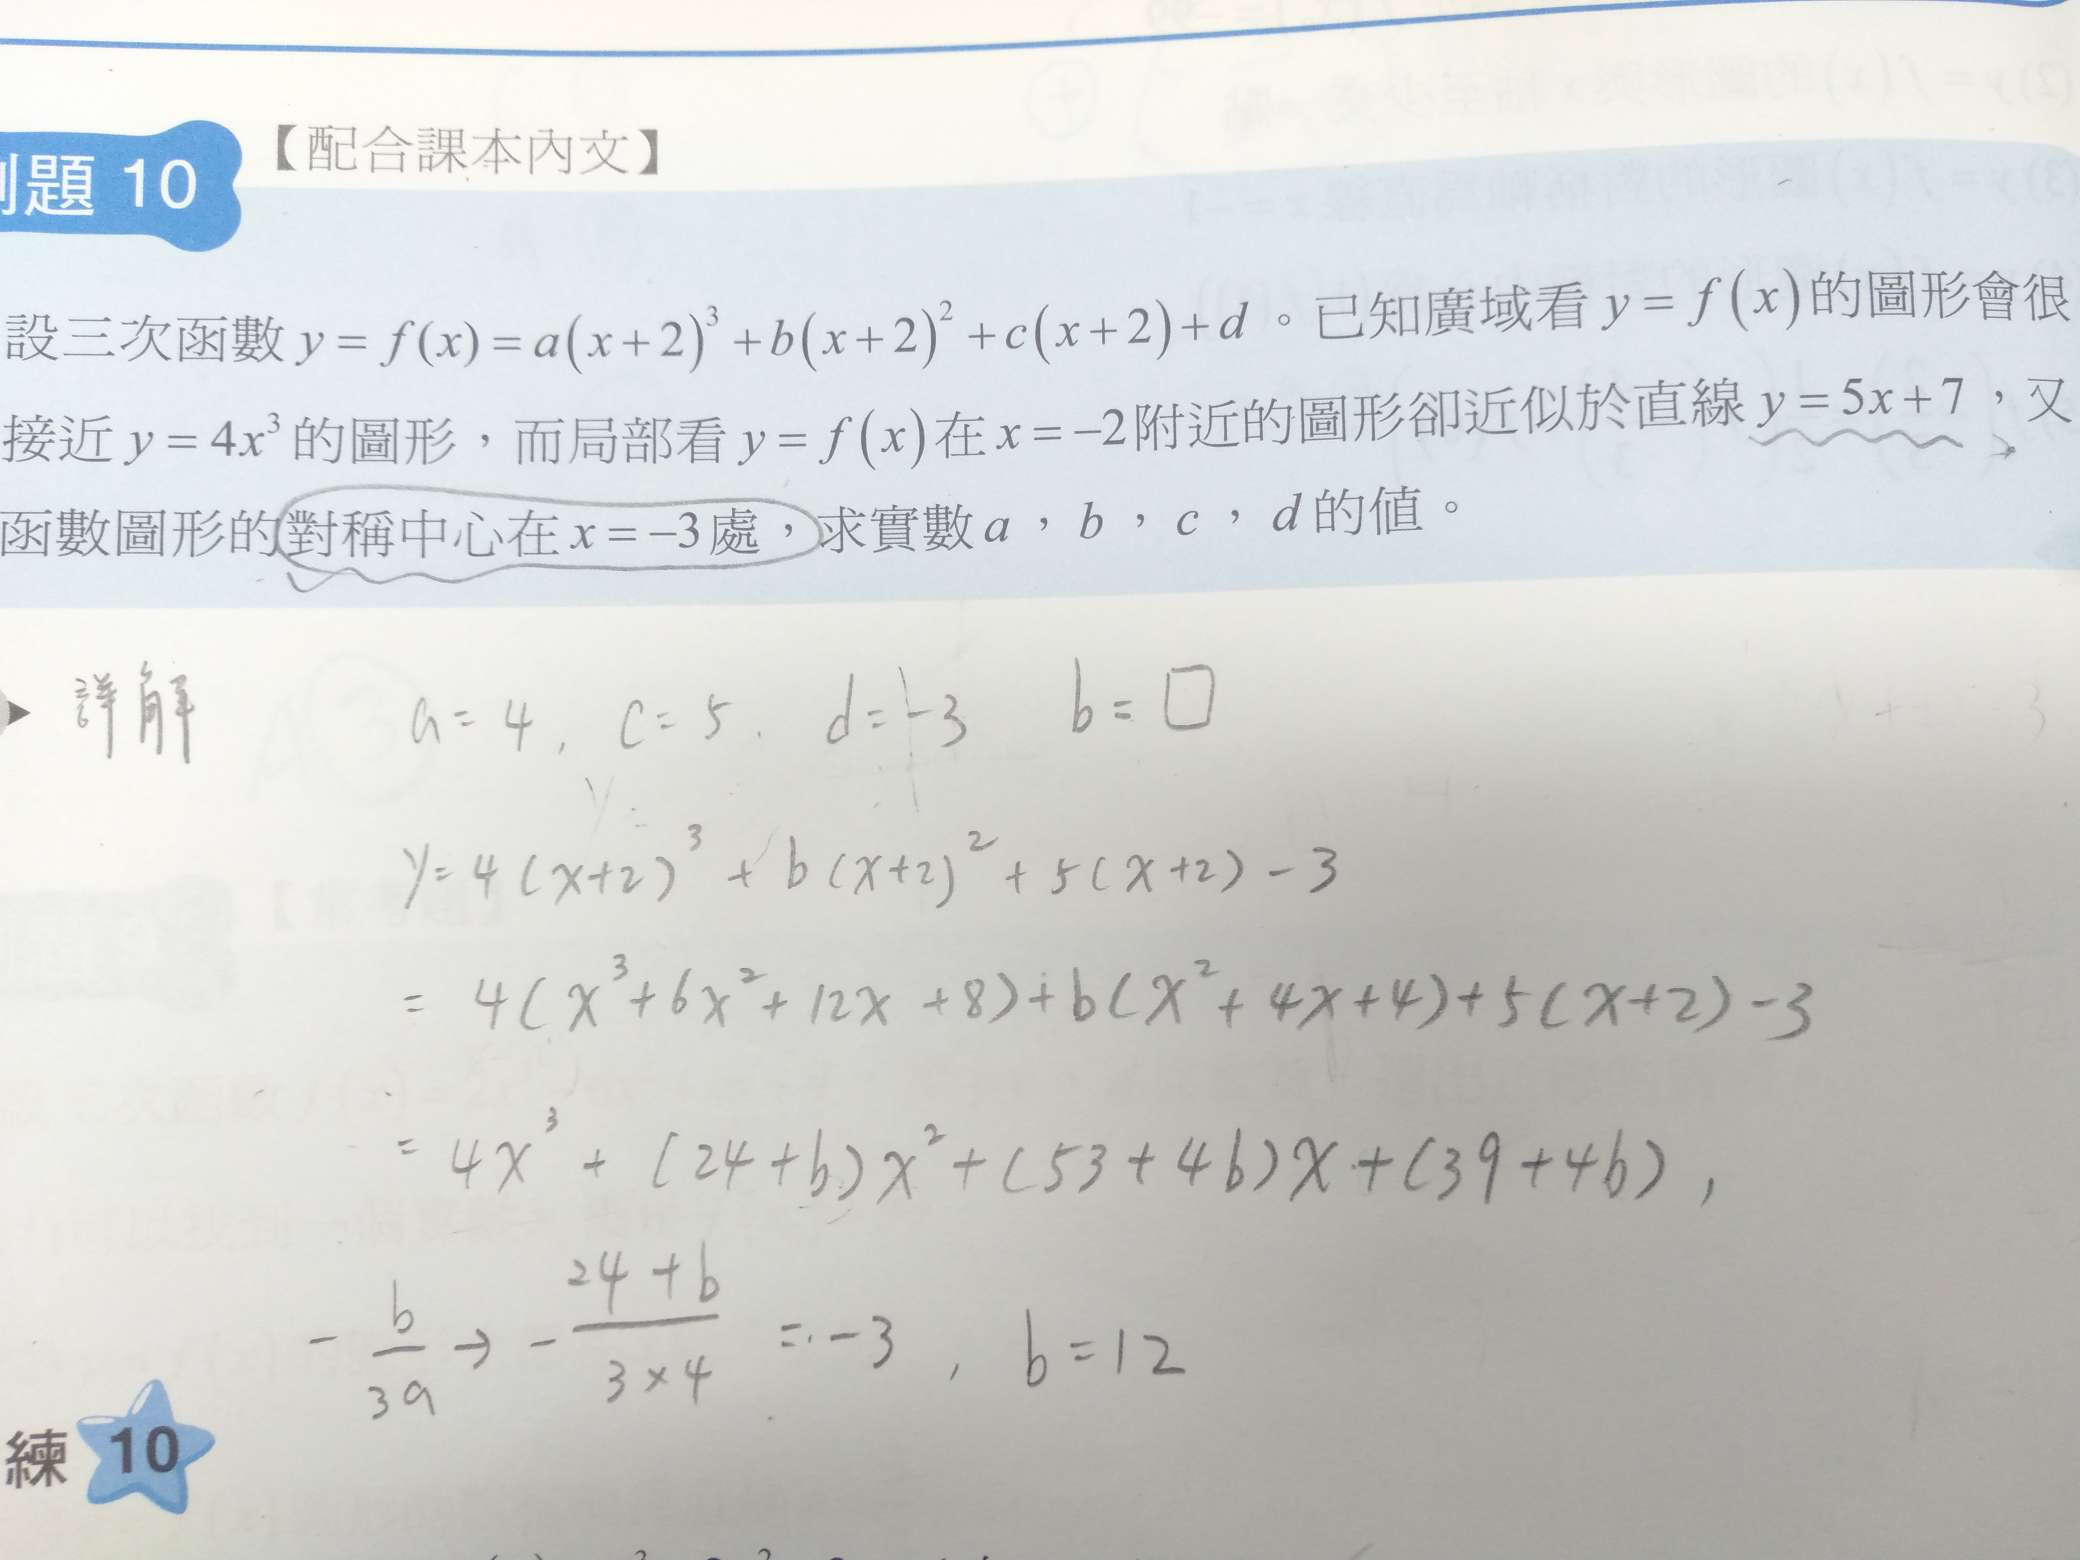 例題 10 【配合課本內文】
設三次函數 y = f(x) = a(x+2)³ + b(x+2)² + c(x+2) + d。已知廣域看 y = f(x) 的圖形會很
接近 y = 4x³ 的圖形，而局部看 y = f(x) 在 x = −2 附近的圖形卻近似於直線 y = 5x + 7，又
函數圖形的對稱中心在 x = −3 處，求實數 a，b，c，d 的值。
詳解 a = 4, c = 5. d = -3 b = □
y = 4(x+2)³ + b(x+2)² + 5(x+2) - 3
= 4(x³ + 6x² + 12x + 8) + b(x² + 4x + 4) + 5(x+2) - 3
= 4x³ + (24+b)x² + (53+4b)x + (39+4b),
-b/3a → -(24+b)/(3×4) = -3, b = 12
練 10